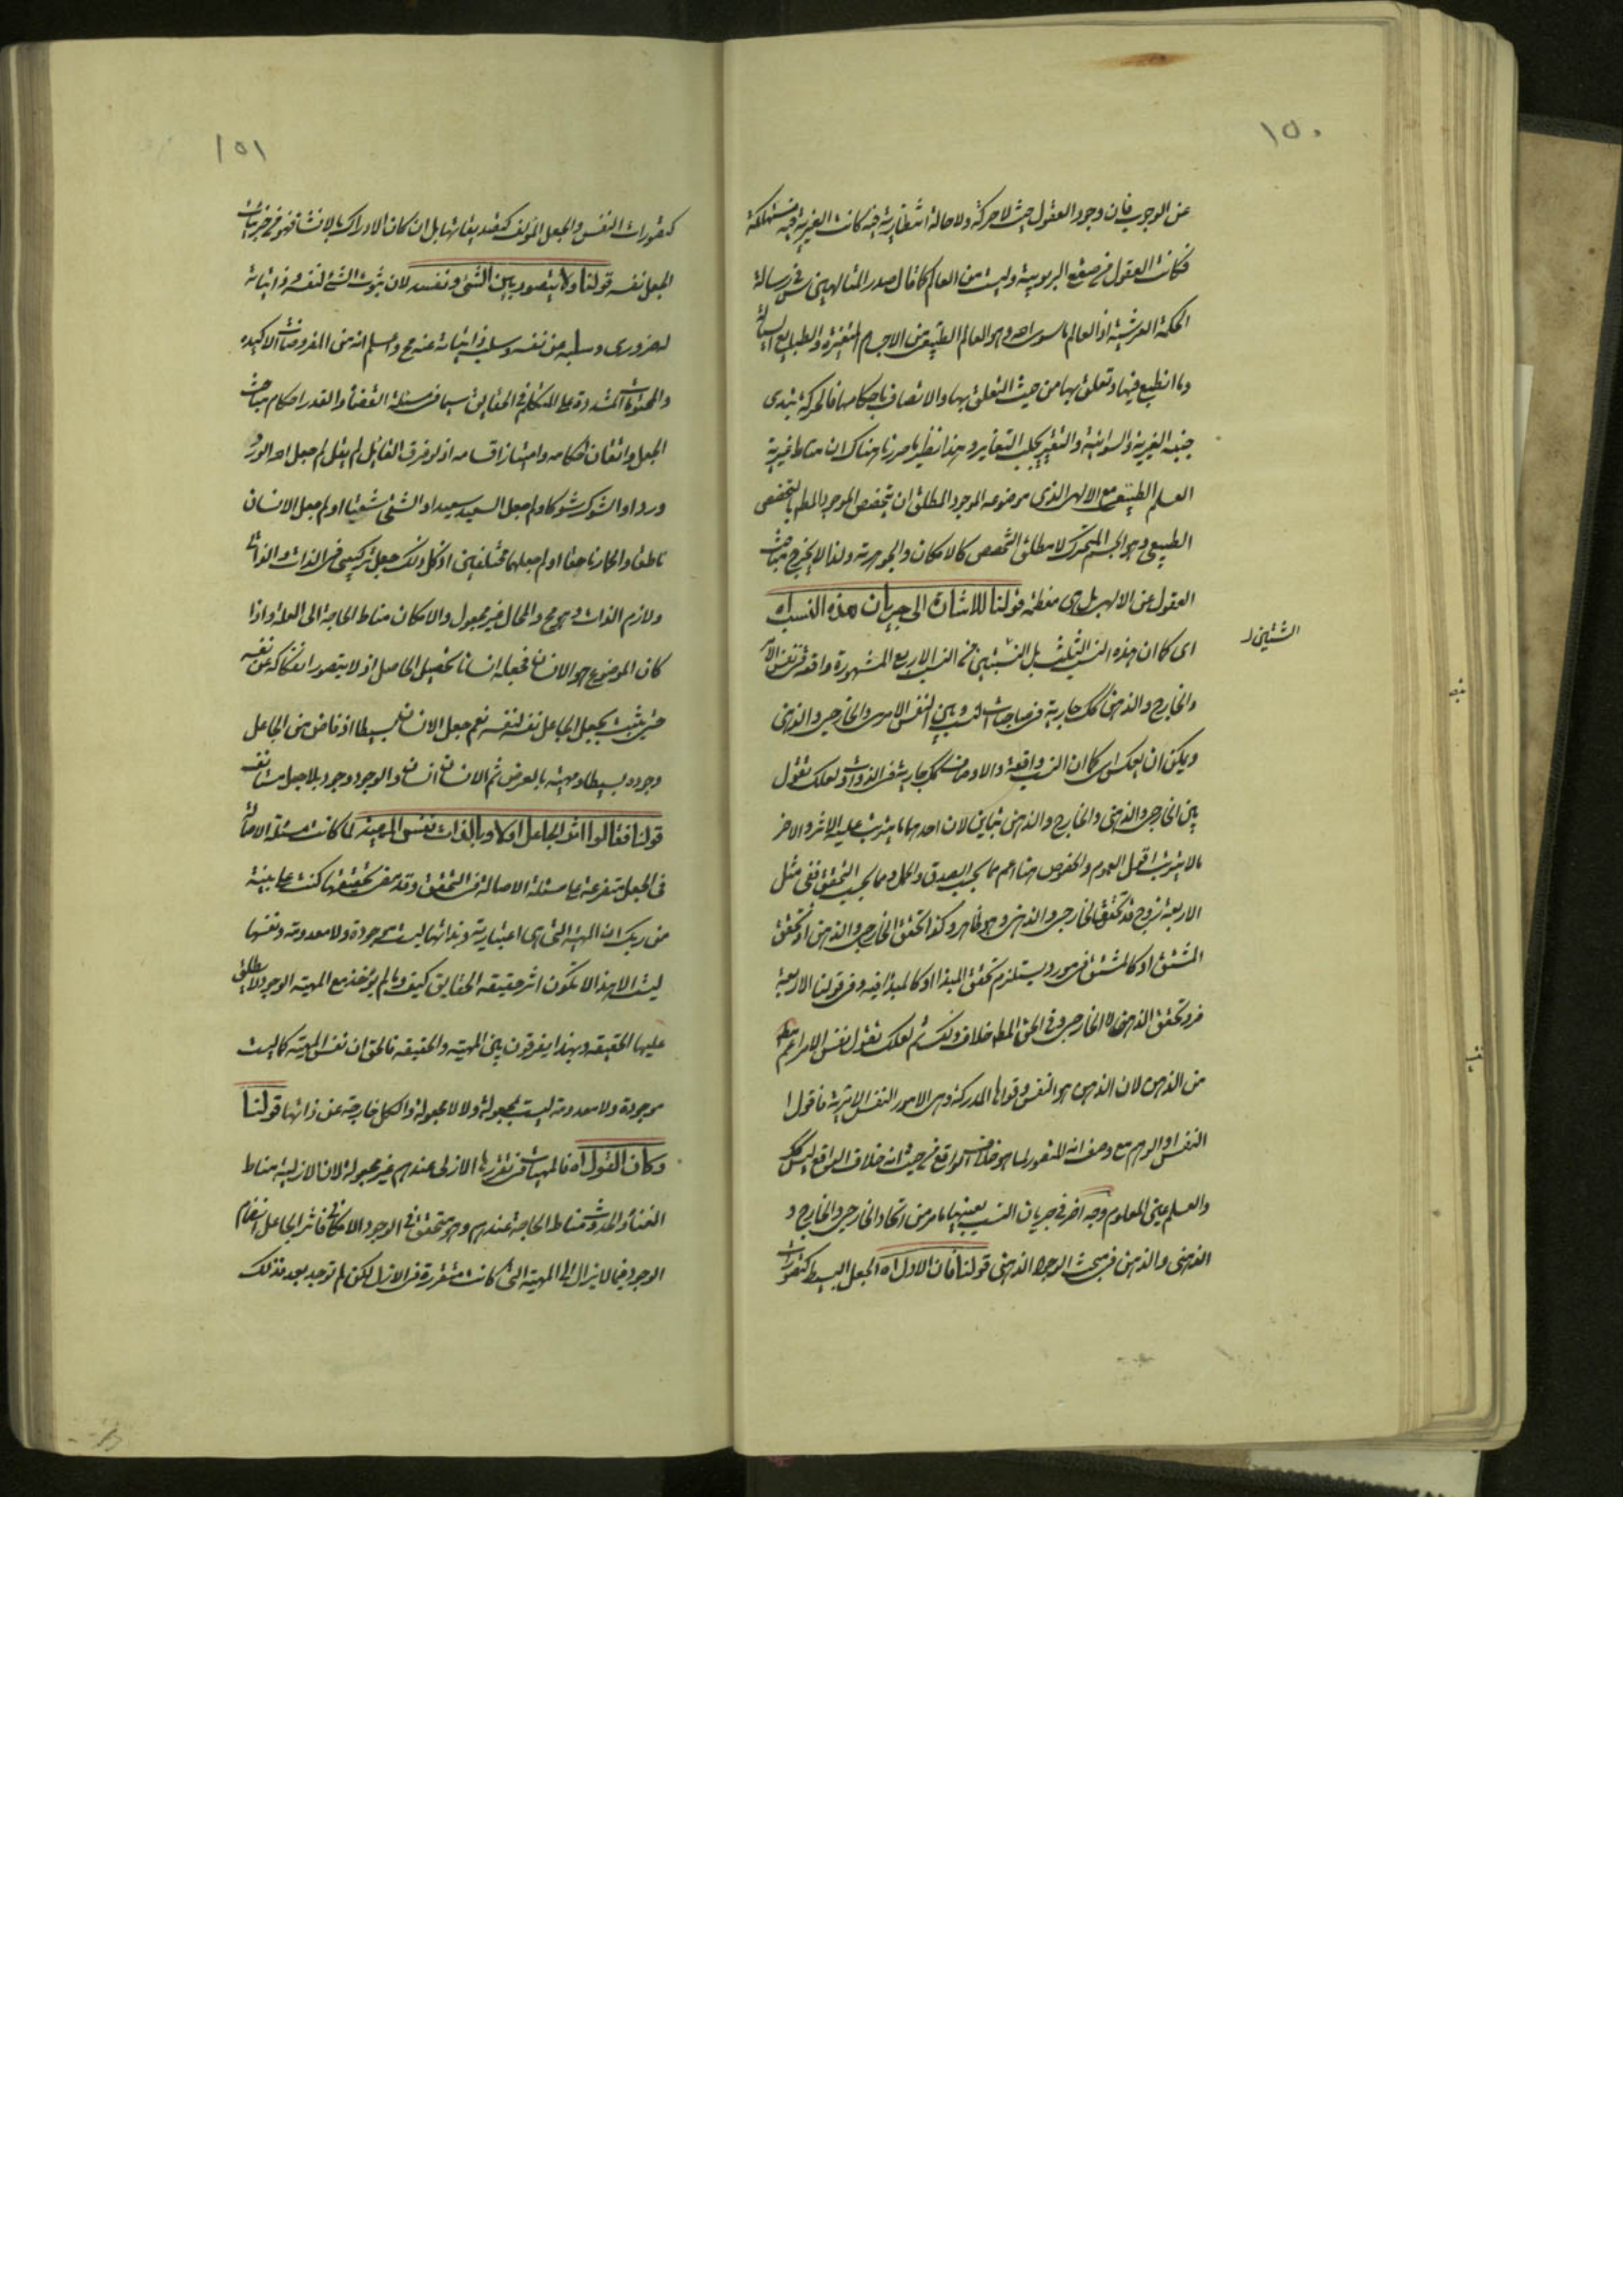 ١٥٠
عن الوجوب فان وجود العقول حيث لا حركة ولا حالة انتظارية فيه كانت الغيرية فيه مستهلكة
فكانت العقول من صقع الربوبية وليست من العالم كما قال صدر المتالهين س في رسالة
الحكمة العرشية اذ العالم ما سوى الله وهو العالم الطبيعي من الاجرام المتغيرة والطبايع السيالة
وما انطبع فيها وتعلق بها من حيث التعلق بها والاتصاف باحكامها فالحركة تبدى
جنبة الغيرية والسوائية والتغير يجلب التغاير وهذا نظير ما مر ناهناك ان مناط غيرية
العلم الطبيعي مع الالهى الذى موضوعه الموجود المطلق ان يتخصص الموجود المط بالتخصص
الطبيعي وهو الجسم المتحرك لا مطلق التخصص كالامكان والجوهرية ولذا لا يخرج مباحث
العقول عن الالهى بل هى معظمه قولنا للاشارة الى جريان هذه النسب اه
الشيئين
اى كما ان هذه النسب الثلث بل النسبتين من النسب الاربع المشهورة واقعة في نفس الامر
والخارج والذهن كك جارية في مباحث النسب وبين النفس الامرى والخارجى والذهنى
ويمكن ان يعكس اى كما ان النسب واقعة والاوصاف كك جارية في الذوات ولعلك تقول
بين الخارجى والذهنى والخارج والذهن تباين لان احدهما ما يترتب عليه الاثر والاخر
ما لا يترتب اقول العموم والخصوص هنا اعم مما بحسب الصدق والحمل ومما بحسب التحقق ففى مثل
الاربعة زوج قد تحقق الخارجى والذهنى وهو ظاهر وكذا تحقق الخارج والذهن اذ تحقق
المشتق او كالمشتق في مورد يستلزم تحقق المبدا او كالمبدا فيه وفى قولنا الاربعة
فرد تحقق الذهنى لا الخارجى وفى الحق المط خلاف ذلك ثم لعلك تقول نفس الامر اعم مط
من الذهن لان الذهن هو النفس وقواها المدركة وهى الامور النفس الامرية فاقول
النفس او الوهم مع وصف انه المتصور لما هو خلاف الواقع من حيث انه خلاف الواقع ليس كك
والعلم عين المعلوم وجه اخر في جريان النسب بعينها ما مر من اتحاد الخارجى والخارج و
الذهنى والذهن في مبحث الوجود الذهنى قولنا فان الاول اه الجعل البسيط كتصورات
١٥١
كتصورات النفس والجعل المؤلف كتصديقاتها بل ان كان الادراك بالانشاء فهو من جزئيات
الجعل نفسه قولنا ولا يتصور بين الشئ ونفسه لان ثبوت الشئ لنفسه وذاتياته
له ضرورى وسلبه عن نفسه وسلب ذاتياته عنه مح واسلم انه من المفروضات الاكيدة
والمحتومات المشددة على المتكلم في الحقايق سيما في مسئلة القضاء والقدر احكام مباحث
الجعل واتقان احكامه وامتياز اقسامه اذ لو فرق القائل لم يقل لم جعل الله الورد
وردا والشوك شوكا ولم جعل السعيد سعيدا والشقى شقيا او لم جعل الانسان
ناطقا والحمار ناهقا او لم جعلهما مختلفين اذ كل ذلك جعل تركيبى في الذات والذاتى
ولازم الذات وهو مح والمحال غير مجعول والامكان مناط الحاجة الى العلة واذا
كان الموضوع هو الانسان فجعله انسانا تحصيل الحاصل اذ لا يتصور انفكاكه عن نفسه
حتى يثبت بجعل الجاعل نفسه لنفسه نعم جعل الانسان بسيطا اذ فاض من الجاعل
وجوده بسيطا ومهيته بالعرض ثم الانسان انسان والوجود وجود بلا جعل مستانف
قولنا فقالوا اثر الجاعل اولا وبالذات نفس المهية لما كانت مسئلة الاصالة
في الجعل متفرعة على مسئلة الاصالة في التحقق وقد مر تحقيقها كنت على بينة
من ربك ان المهية التى هى اعتبارية وبذاتها ليست موجودة ولا معدومة ونفسها
ليست الا هذا لا تكون اثر حقيقة الحقايق كيف وما لم يؤخذ مع المهية الوجود لا يطلق
عليها الحقيقة وبهذا يفرقون بين المهية والحقيقة فالحق ان نفس المهية كما ليست
موجودة ولا معدومة ليست مجعولة ولا لا مجعولة والكل خارجة عن ذاتها قولنا
وكان القول اه فالمهيات في تقررها الازلى عندهم غير مجعولة لان الازلية مناط
الغناء والحدوث مناط الحاجة عندهم وهو متحقق في الوجود الامكانى فاثر الجاعل انضمام
الوجود فيما لا يزال الى المهية التى كانت متقررة في الازل لكن لم توجد بعد فذلك